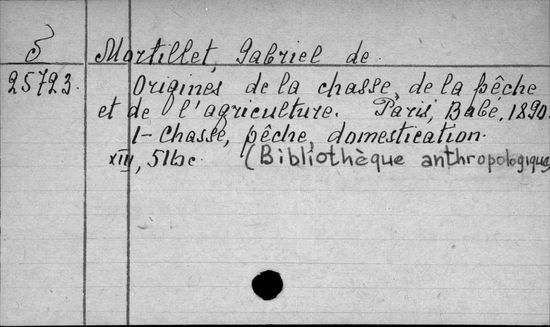 S Mortillet, Gabriel de
25723. Origines de la chasse, de la pêche
et de l'agriculture. Paris, Babé, 1890.
1- Chasse, pêche, domestication.
XIII, 516c. (Bibliothèque anthropologique)